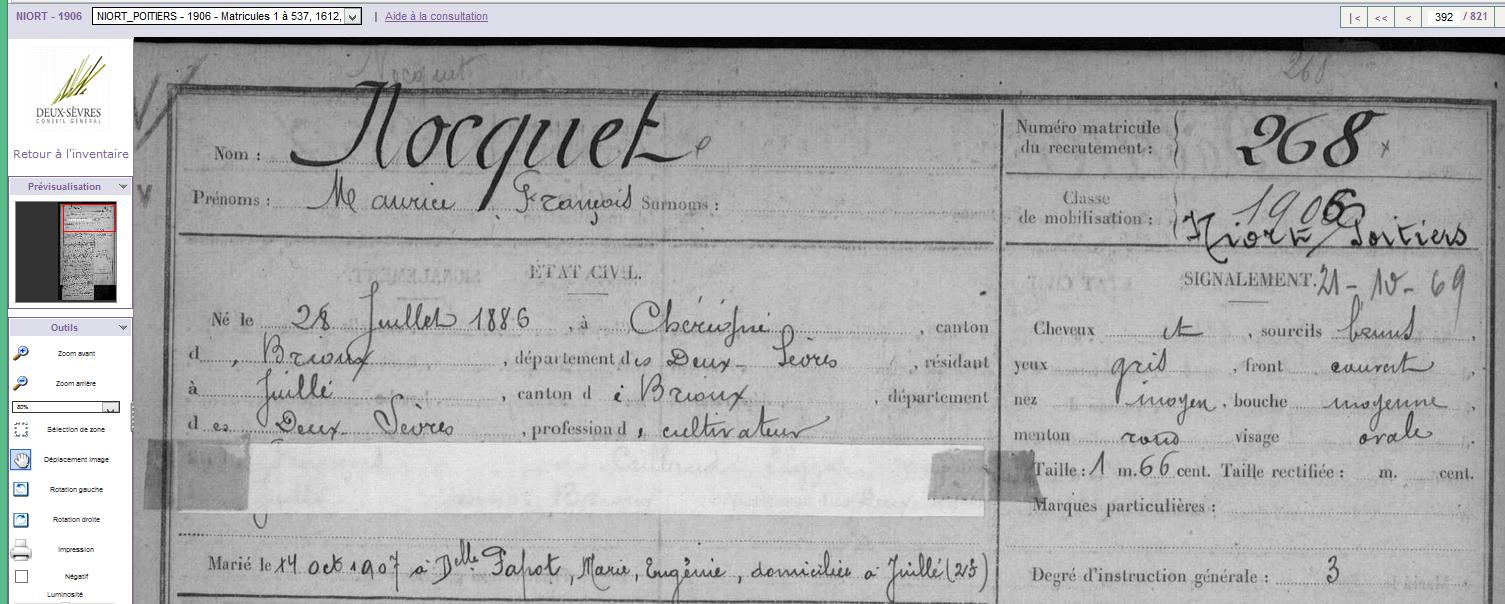 NIORT - 1906
NIORT_POITIERS - 1906 - Matricules 1 à 537, 1612,
| Aide à la consultation
|< << < 392 / 821
DEUX-SÈVRES
CONSEIL GÉNÉRAL
Retour à l'inventaire
Prévisualisation
Outils
Zoom avant
Zoom arrière
80%
Sélection de zone
Déplacement image
Rotation gauche
Rotation droite
Impression
Négatif
Luminosité
Nocquet
268
Nom : Nocquet
Prénoms : Maurice François Surnoms :
Numéro matricule du recrutement : 268
Classe de mobilisation : 1906
Niort/Poitiers
ÉTAT CIVIL.
Né le 28 Juillet 1886, à Chérigné, canton
d, Brioux, département des Deux-Sèvres, résidant
à Juillé, canton d e Brioux, département
des Deux Sèvres, profession d, cultivateur
Marié le 14 oct 1907 à Delle Papot, Marie, Eugénie, domiciliée à Juillé (2S)
SIGNALEMENT. 21-10-69
Cheveux et, sourcils bruns,
yeux gris, front couvert,
nez moyen, bouche moyenne,
menton rond visage ovale
Taille : 1 m. 66 cent. Taille rectifiée : m. cent.
Marques particulières :
Degré d'instruction générale : 3